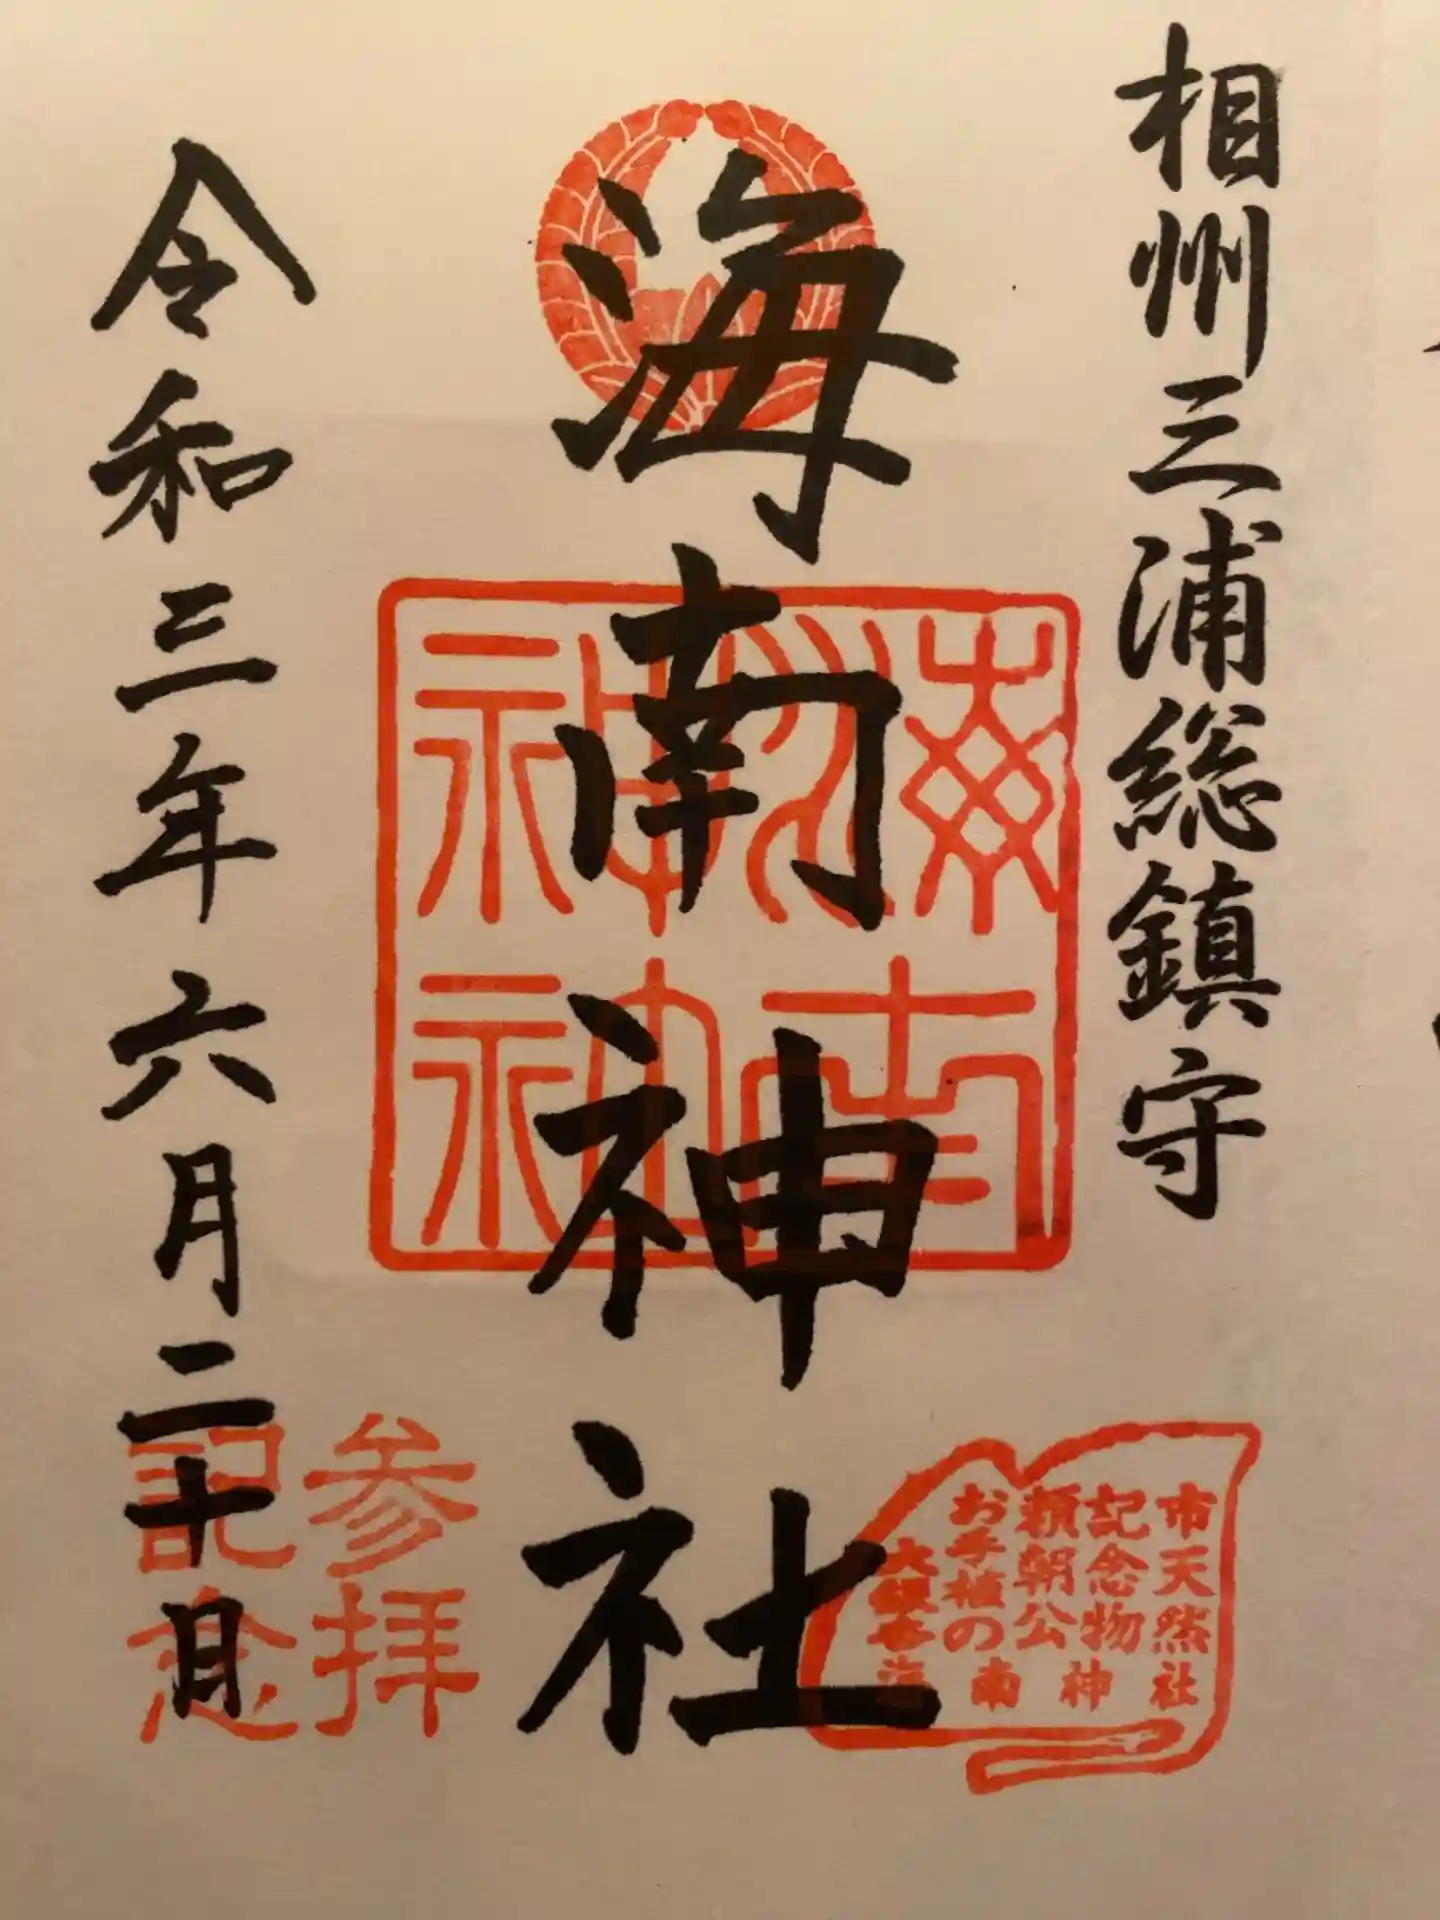 相州三浦総鎮守
海南神社
令和三年六月二十日
海南
神社
市天然
記念物
頼朝公
お手植の
大銀杏
海南神社
参拝
記念